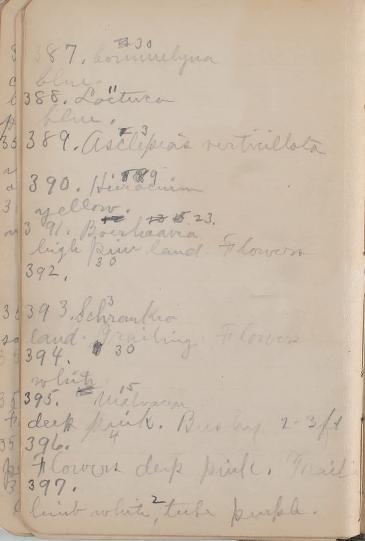 30
387. Commelyna
blue.
388. Lactuca
blue.
3
389. Asclepias verticillata
390. Hieracium
yellow.
23.
391. Boerhaavia
high pine land. Flowers
30
392.
3
393. Schrankia
land. Trailing Flowers
394. 30
white
15
395. Malvacea
deep pink. Bushy 2-3 ft
396. 4
Flowers deep pink.
397.
limb white, tube purple.